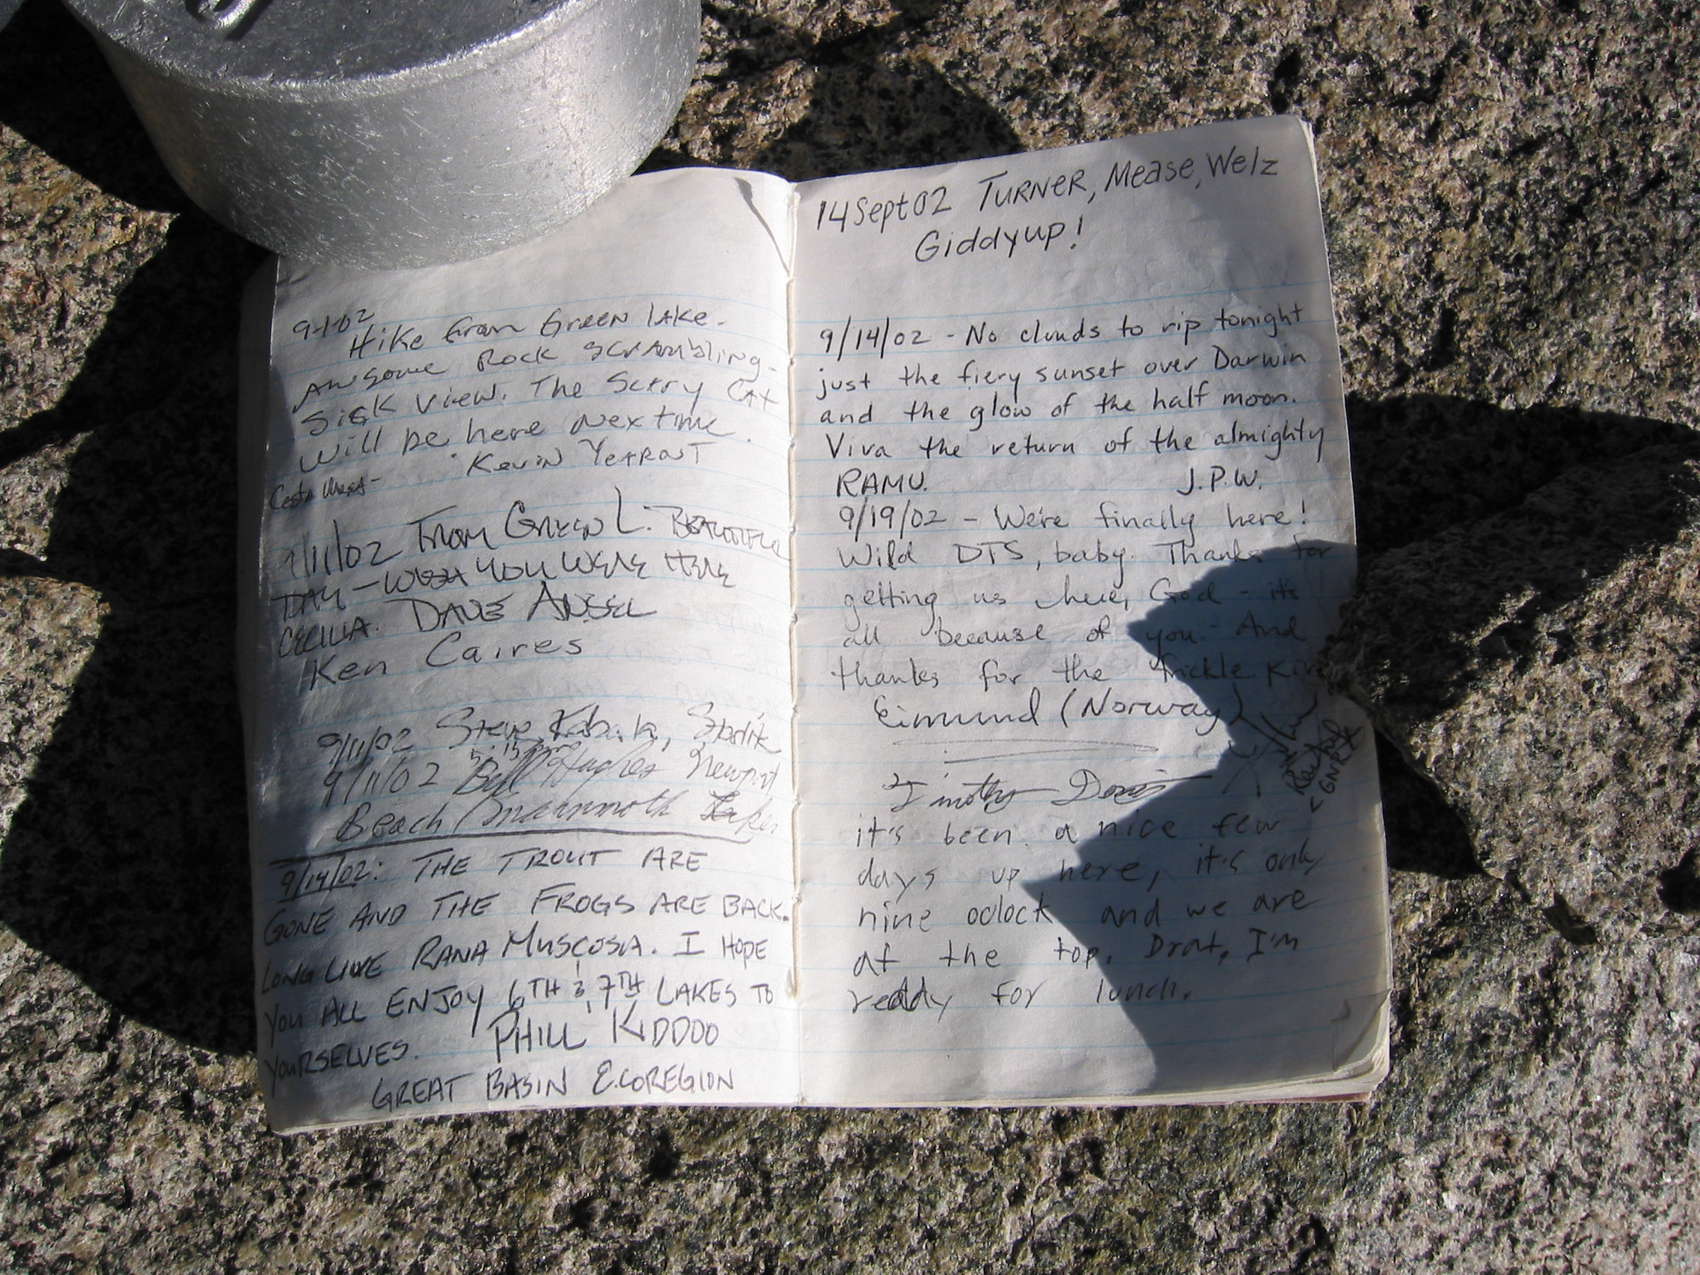 9-1-02
Hike from Green Lake.
Awsome Rock Scrambling.
Sick View. The Scrry Cat
will be here Nextime.
Kevin Yearout
Costa Mesa-
9/11/02 From Green L. Beautiful
Day - wish you were here
Cecilia. Dave Ansel
Ken Caires
9/11/02 Steve
9/11/02 Bill Hughes Newport
Beach / Mammoth Lakes
9/14/02: The trout are
gone and the frogs are back.
Long live Rana Muscosa. I hope
you all enjoy 6th & 7th Lakes to
yourselves. Phill Kiddoo
Great Basin Ecoregion
14 Sept 02 Turner, Mease, Welz
Giddyup!
9/14/02 - No clouds to rip tonight
just the fiery sunset over Darwin
and the glow of the half moon.
Viva the return of the almighty
RAMU. J.P.W.
9/19/02 - We're finally here!
Wild DTS, baby. Thanks for
getting us here, God - it's
all because of you. And
thanks for the trickle
Eimund (Norway)
Timothy Davis
it's been a nice few
days up here, it's only
nine oclock and we are
at the top. Drat, I'm
reddy for lunch.